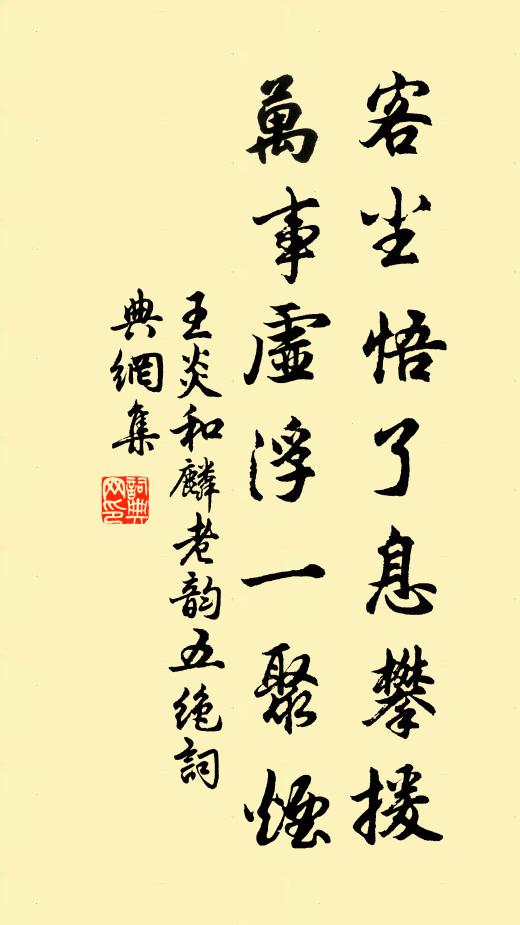 客尘悟了息攀援
萬事虛浮一聚煙
王炎和麟老韵五绝詞
典網集
詞典
网印